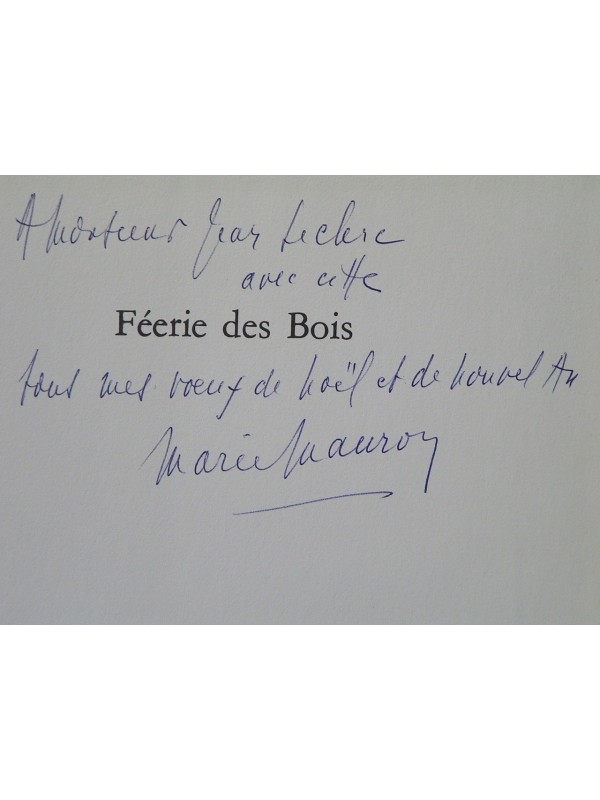 A Monsieur Jean Leclerc
avec cette
Féerie des Bois
tous mes voeux de Noël et de nouvel An
Marie Mauron